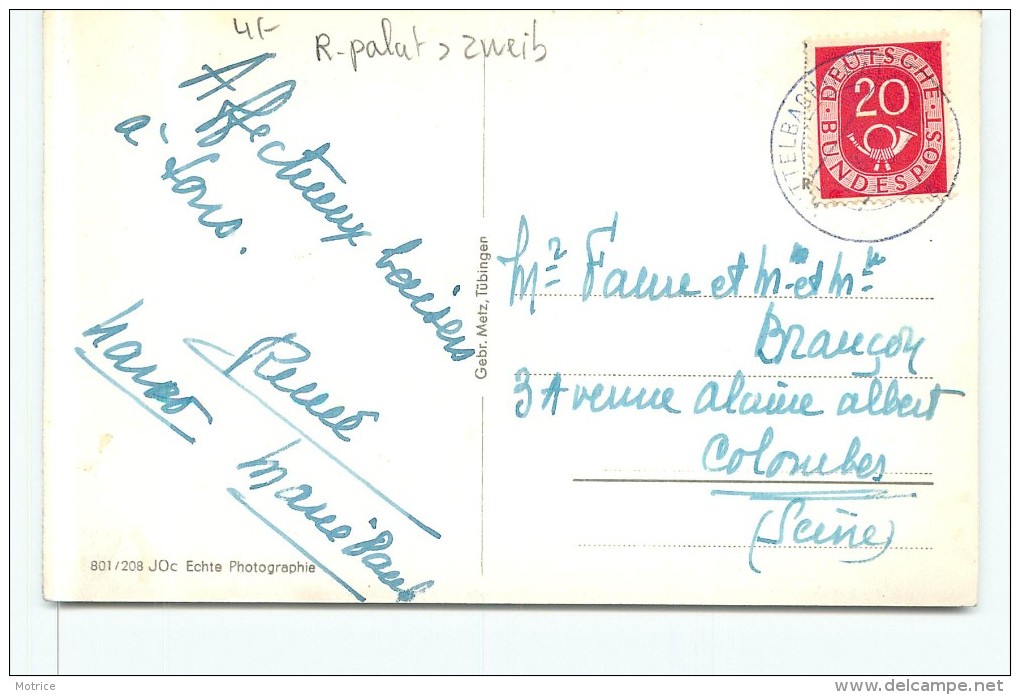 4F
R-palat > zweib
Affectueux baisers
à tous.
Renée
Marie Paule
801/208 JOc Echte Photographie
Gebr. Metz, Tübingen
DEUTSCHE
20
BUNDESPOST
TTELBACH
Mr Faure et Mme et Mlle
Brançon
3 Avenue alaine albert
Colombes
(Seine)
Motrice
www.delcampe.net